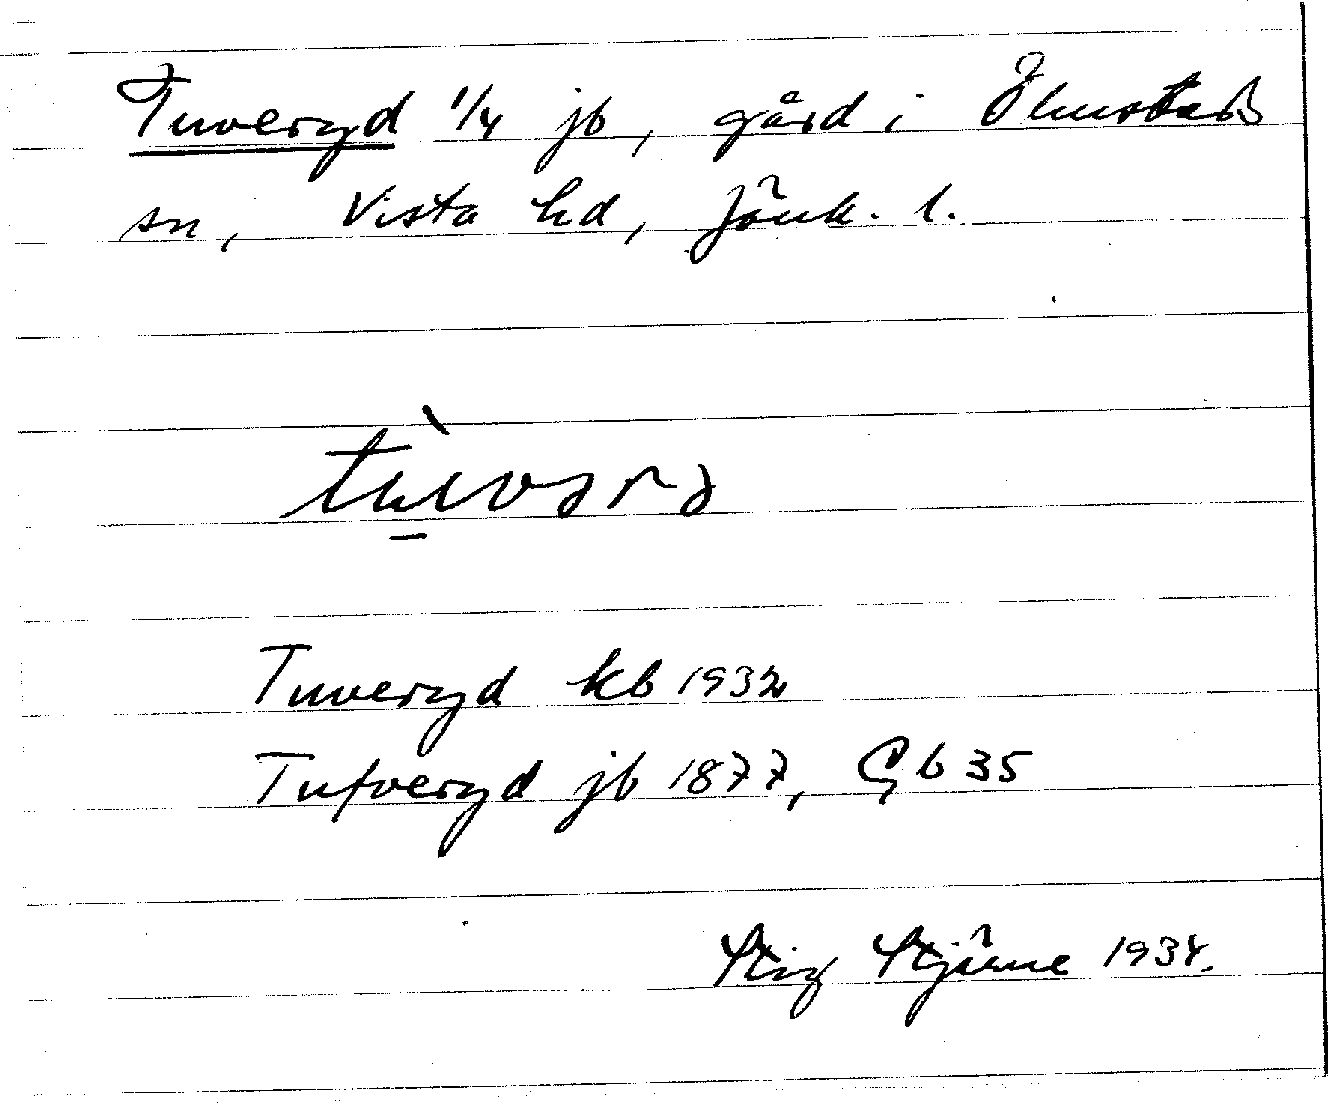 Tuveryd 1/4 jb, gård i Ölmstads
sn, Vista hd, Jönk. l.
tùvərə
Tuveryd kb 1932
Tufveryd jb 1877, Gb 35
Stig Stjärne 1934.